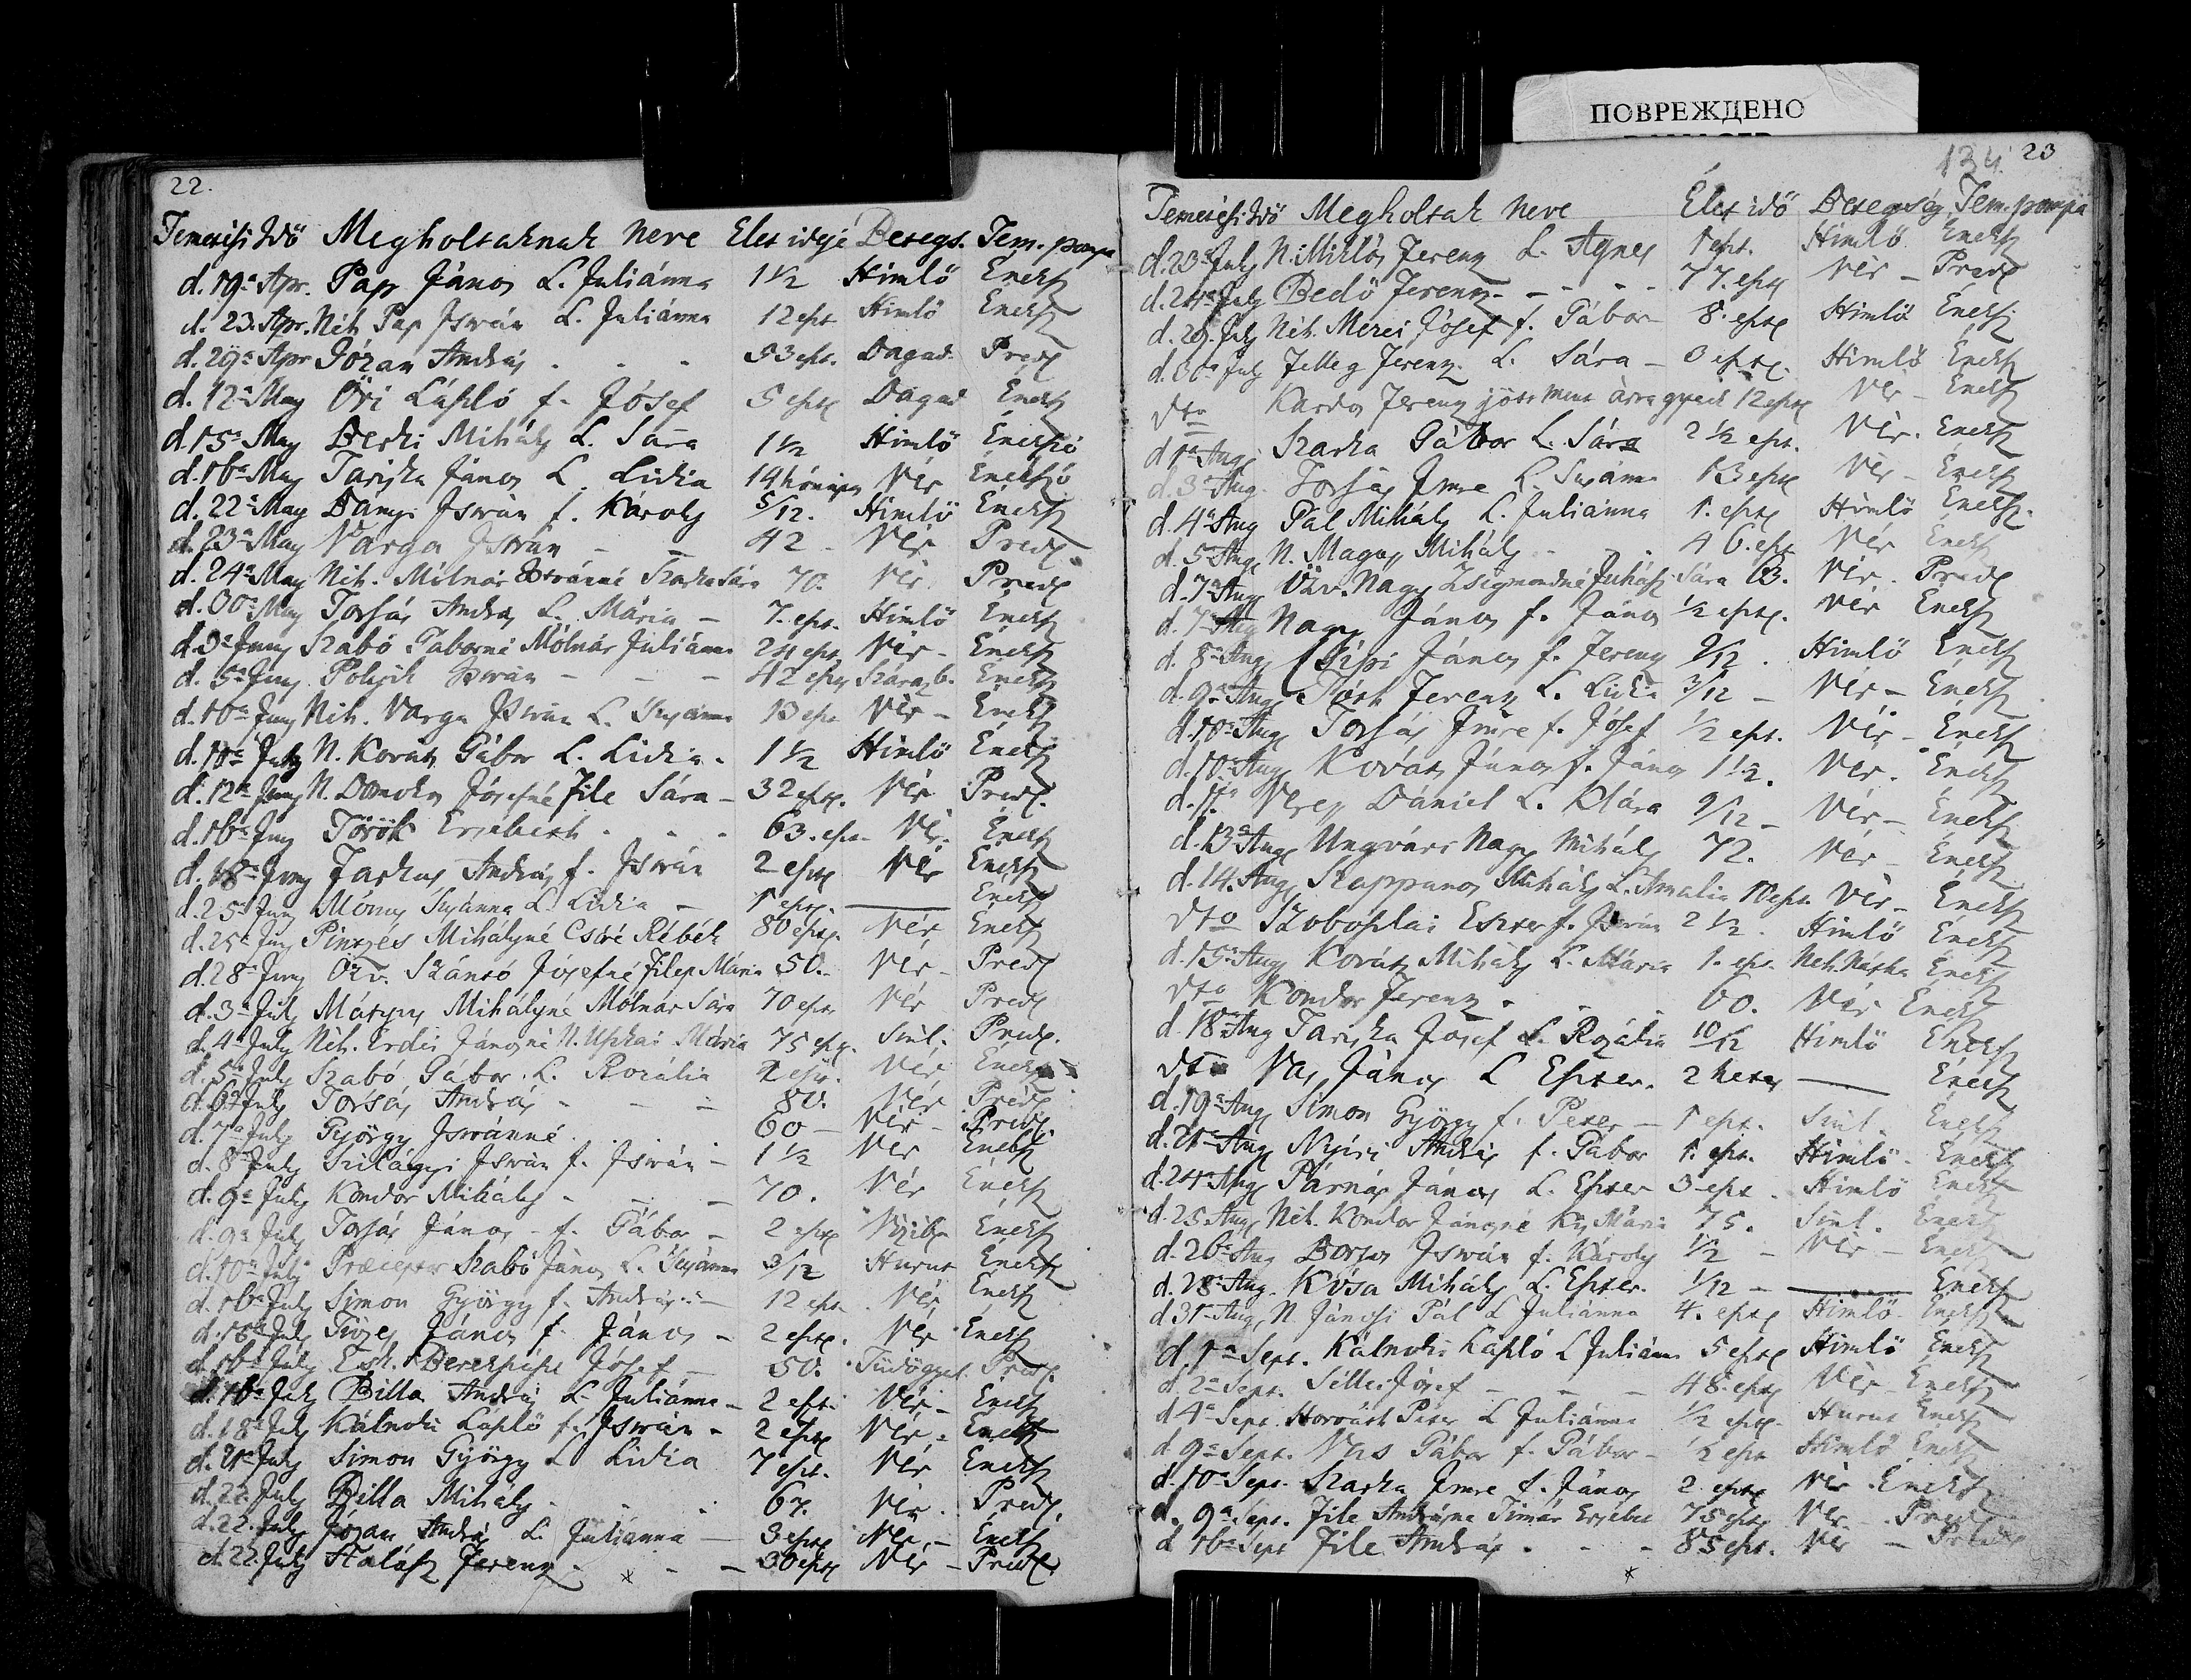 ПОВРЕЖДЕНО
22.
Temetési Idö Megholtaknak Neve Elet ideje Betegs. Tem. pompa
d. 19a Apr. Pap János L. Juliánna 1 1/2 Himlö Éneksz
d. 23. Apr. Néh. Pap István L. Juliánna 12 eszt. Himlö Éneksz
d. 29a Apr Józan András 53 eszt. Dagad. Pred.
d. 12a May Öri László f. Jósef 5 eszt. Dagad Éneksz
d. 15a May Berki Mihály L. Sára 1 1/2 Himlö Éneksző
d. 16a May Tariska János L. Lidia 14 hónapos Vér Éneksző
d. 22a May Bányi István f. Károly 5/12. Himlö Éneksz
d. 23a May Varga István 42 Vér Pred.
d. 24a May Néh. Mólnár Istvánné Szarka Sára 70. Vér Pred.
d. 30a May Forsás András L. Mária 7. eszt. Himlö Éneksz
d. 3a Juny Szabó Gáborné Mólnár Juliánna 24 eszt. Vér Éneksz
d. 5a Juny István 42 eszt. Száraz b. Éneksz
d. 10a Juny Néh. Varga István L. Susánna 13 eszt. Vér Éneksz
d. 11a July N. Kováts Gábor L. Lidia 1 1/2 Himlö Éneksz
d. 12a Juny N. Domokos Jósefné File Sára 32 eszt. Vér Pred.
d. 16a Juny Török Ersébeth 63. eszt. Vér Éneksz
d. 18a Juny Farkas András f. István 2 eszt. Vér Éneksz
d. 25a Juny Susánna L. Lidia 1 eszt. Éneksz
d. 25a Juny Pintzés Mihályné Csiré Rébék 80 eszt. Vér Éneksz
d. 28a Juny Özv. Szántó Jósefné Filep Mária 50. Vér Pred.
d. 3a July Mátyus Mihályné Mólnár Sára 70 eszt. Vér Pred.
d. 4a July Néh. Erdei Jánosné N. Mária 75 eszt. Sinl. Pred.
d. 5a July Szabó Gábor L. Rozália eszt. Vér Éneksz
d. 6a July Forsás András 80. Vér Pred.
d. 7a July György Istvánné 60 Vér Pred.
d. 8a July Szilágyi István f. István 1 1/2 Vér Éneksz
d. 9a July Kondor Mihály 70. Vér Éneksz
d. 9a July Forsás János f. Gábor 2 eszt. Éneksz
d. 10a July Præceptor Szabó János L. Susánna 3/12 Hurut Éneksz
d. 16a July Simon György f. András 12 eszt. Vér Éneksz
d. 16a July János f. János 2 eszt. Vér Éneksz
d. 16a July Esk. Jósef 50. Pred.
d. 16a July Billa András L. Juliánna 2 eszt. Vér Éneksz
d. 18a July Kálnoki László f. István 2 eszt. Vér Éneksz
d. 21a July Simon György L. Lidia 7 eszt. Vér Éneksz
d. 22. July Billa Mihály 67. Vér Pred.
d. 22. July Józan András L. Juliánna 3 eszt. Vér Éneksz
d. 22. July Halász Ferenz 30 eszt. Vér Pred.
134. 23
Temetési Idö Megholtak Neve Élet idö Betegség Tem. pompa
d. 23a July N. Miklós Ferenz L. Ágnes 1 eszt. Himlö Éneksz
d. 24a July Bedö Ferenz 77. eszt. Vér Pred.
d. 29. July Néh. Mezei Jósef f. Gábor 8. eszt. Himlö Éneksz
d. 30a July Ferenz L. Sára 3 eszt. Himlö Éneksz
dto Kardos Ferenz jött ment árva gyerek 12 eszt. Vér Éneksz
d. 1a Aug. Szarka Gábor L. Sára 2 1/2 eszt. Vér. Éneksz
d. 3a Aug. Forsás Imre L. Susánna 13 eszt. Vér Éneksz
d. 4a Aug Pál Mihály L. Juliánna 1. eszt. Himlö Éneksz
d. 5a Aug. N. Magos Mihály 46. eszt. Vér Éneksz
d. 7a Aug Özv. Nagy Zsigmondné Juhász Sára Vér. Pred.
d. 7a Aug Nagy János f. János 1/2 eszt. Vér Éneksz
d. 8a Aug János f. Ferenz 9/12. Himlö Éneksz
d. 9a Aug. Tóth Ferenz L. Lidia 3/12 Vér Éneksz
d. 10a Aug Forsás Imre f. Jósef 1/2 eszt. Vér Éneksz
d. 10a Aug Kováts János f. János 1 1/2. Vér. Éneksz
d. 11a Veres Dániel L. Klára 9/12 Vér Éneksz
d. 13a Aug Ungvári Nagy Mihály 72. Vér Éneksz
d. 14. Aug Szappanos Mihály L. Amalia 10 eszt. Vér Éneksz
dto Szoboszlai Eszter f. István 2 1/2. Himlö Éneksz
d. 15a Aug Kováts Mihály L. Mária 1. eszt. Neh. Nátha Éneksz
dto Kondor Ferenz 60. Vér Éneksz
d. 18a Aug Tariska Jósef L. Rozália 10/12 Himlö Éneksz
dto Vas János L Eszter. 2 hetes Éneksz
d. 19a Aug Simon György f. Péter 1 eszt. Sinl. Éneksz
d. 21a Aug Nyíri András f. Gábor 1. eszt. Himlö Éneksz
d. 24a Aug Párnás János L. Eszter 3 eszt. Himlö Éneksz
d. 25 Aug. Néh. Kondor Jánosné Kis Mária 75. Sinl. Éneksz
d. 26a Aug Borsos István f. Károly 1/2 Vér Éneksz
d. 28a Aug. Kósa Mihály L. Eszter. 1/12 Éneksz
d. 31a Aug. N. Jánosi Pál L Juliánna 4. eszt. Himlö Éneksz
d. 1a Sept. Kálnoki László L Juliánna 5 eszt. Himlö Éneksz
d. 2a Sept. Sillei Jósef 48. eszt. Vér Éneksz
d. 4a Sept. Horváth Péter L Juliánna 1/2 eszt. Hurut Éneksz
d. 9a Sept. Vas Gábor f. Gábor 1/2 eszt. Himlö Éneksz
d. 10a Sept. Szarka Imre f. János 2 eszt. Vér Éneksz
d. 9a Sept. File Andrásné Timár Ersébet 75 eszt. Vér Pred.
d. 16a Sept File András 85 eszt. Vér Pred.